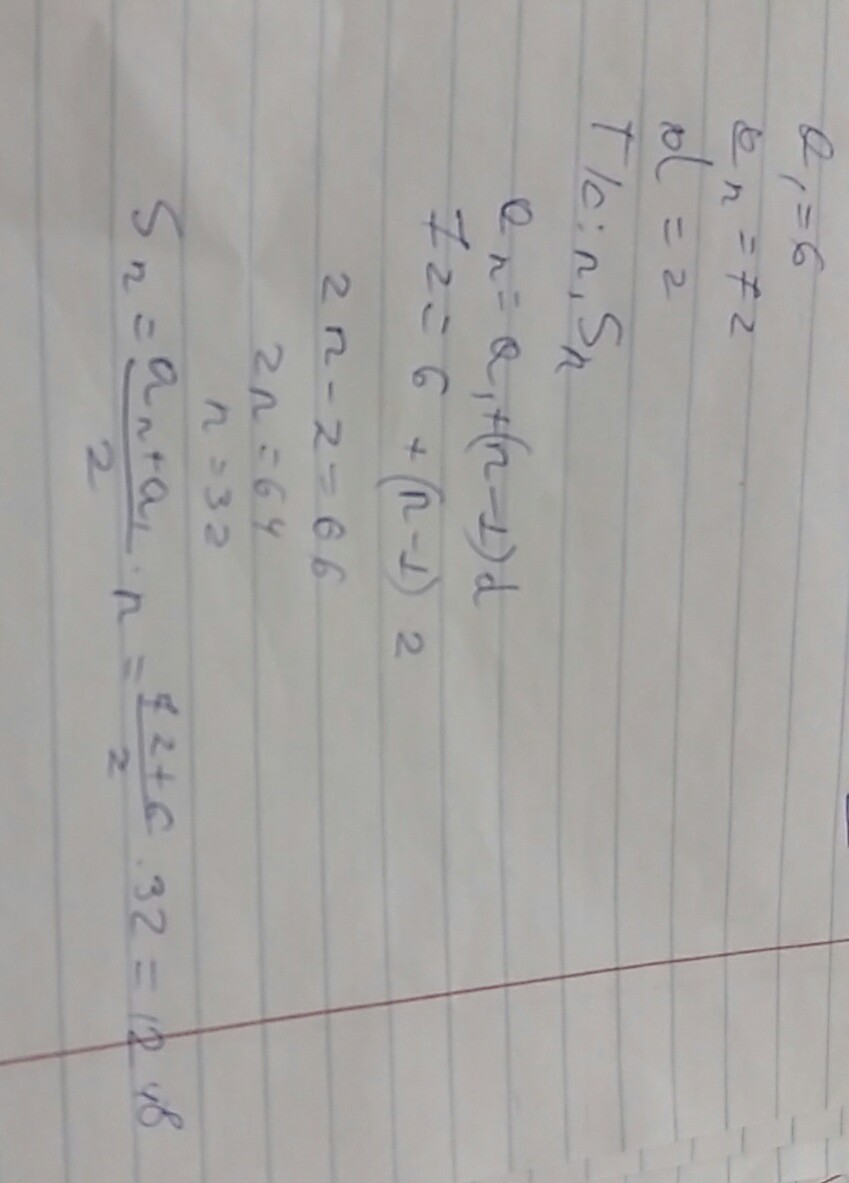 a₁ = 6
aₙ = 72
d = 2
T/c: n, Sₙ
aₙ = a₁ + (n-1)d
72 = 6 + (n-1) 2
2n - 2 = 66
2n = 64
n = 32
Sₙ = (aₙ + a₁)/2 · n = (72 + 6)/2 . 32 = 1248